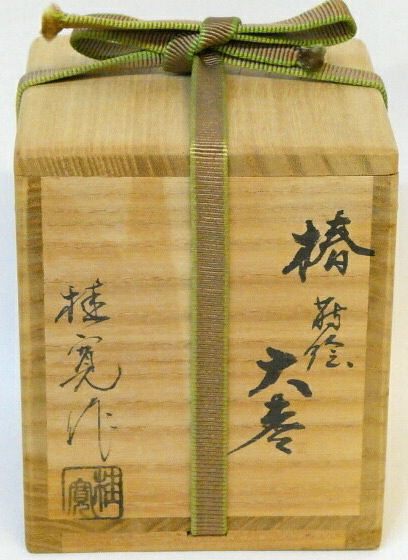 椿
蒔絵
大棗
桂寛作
桂寛